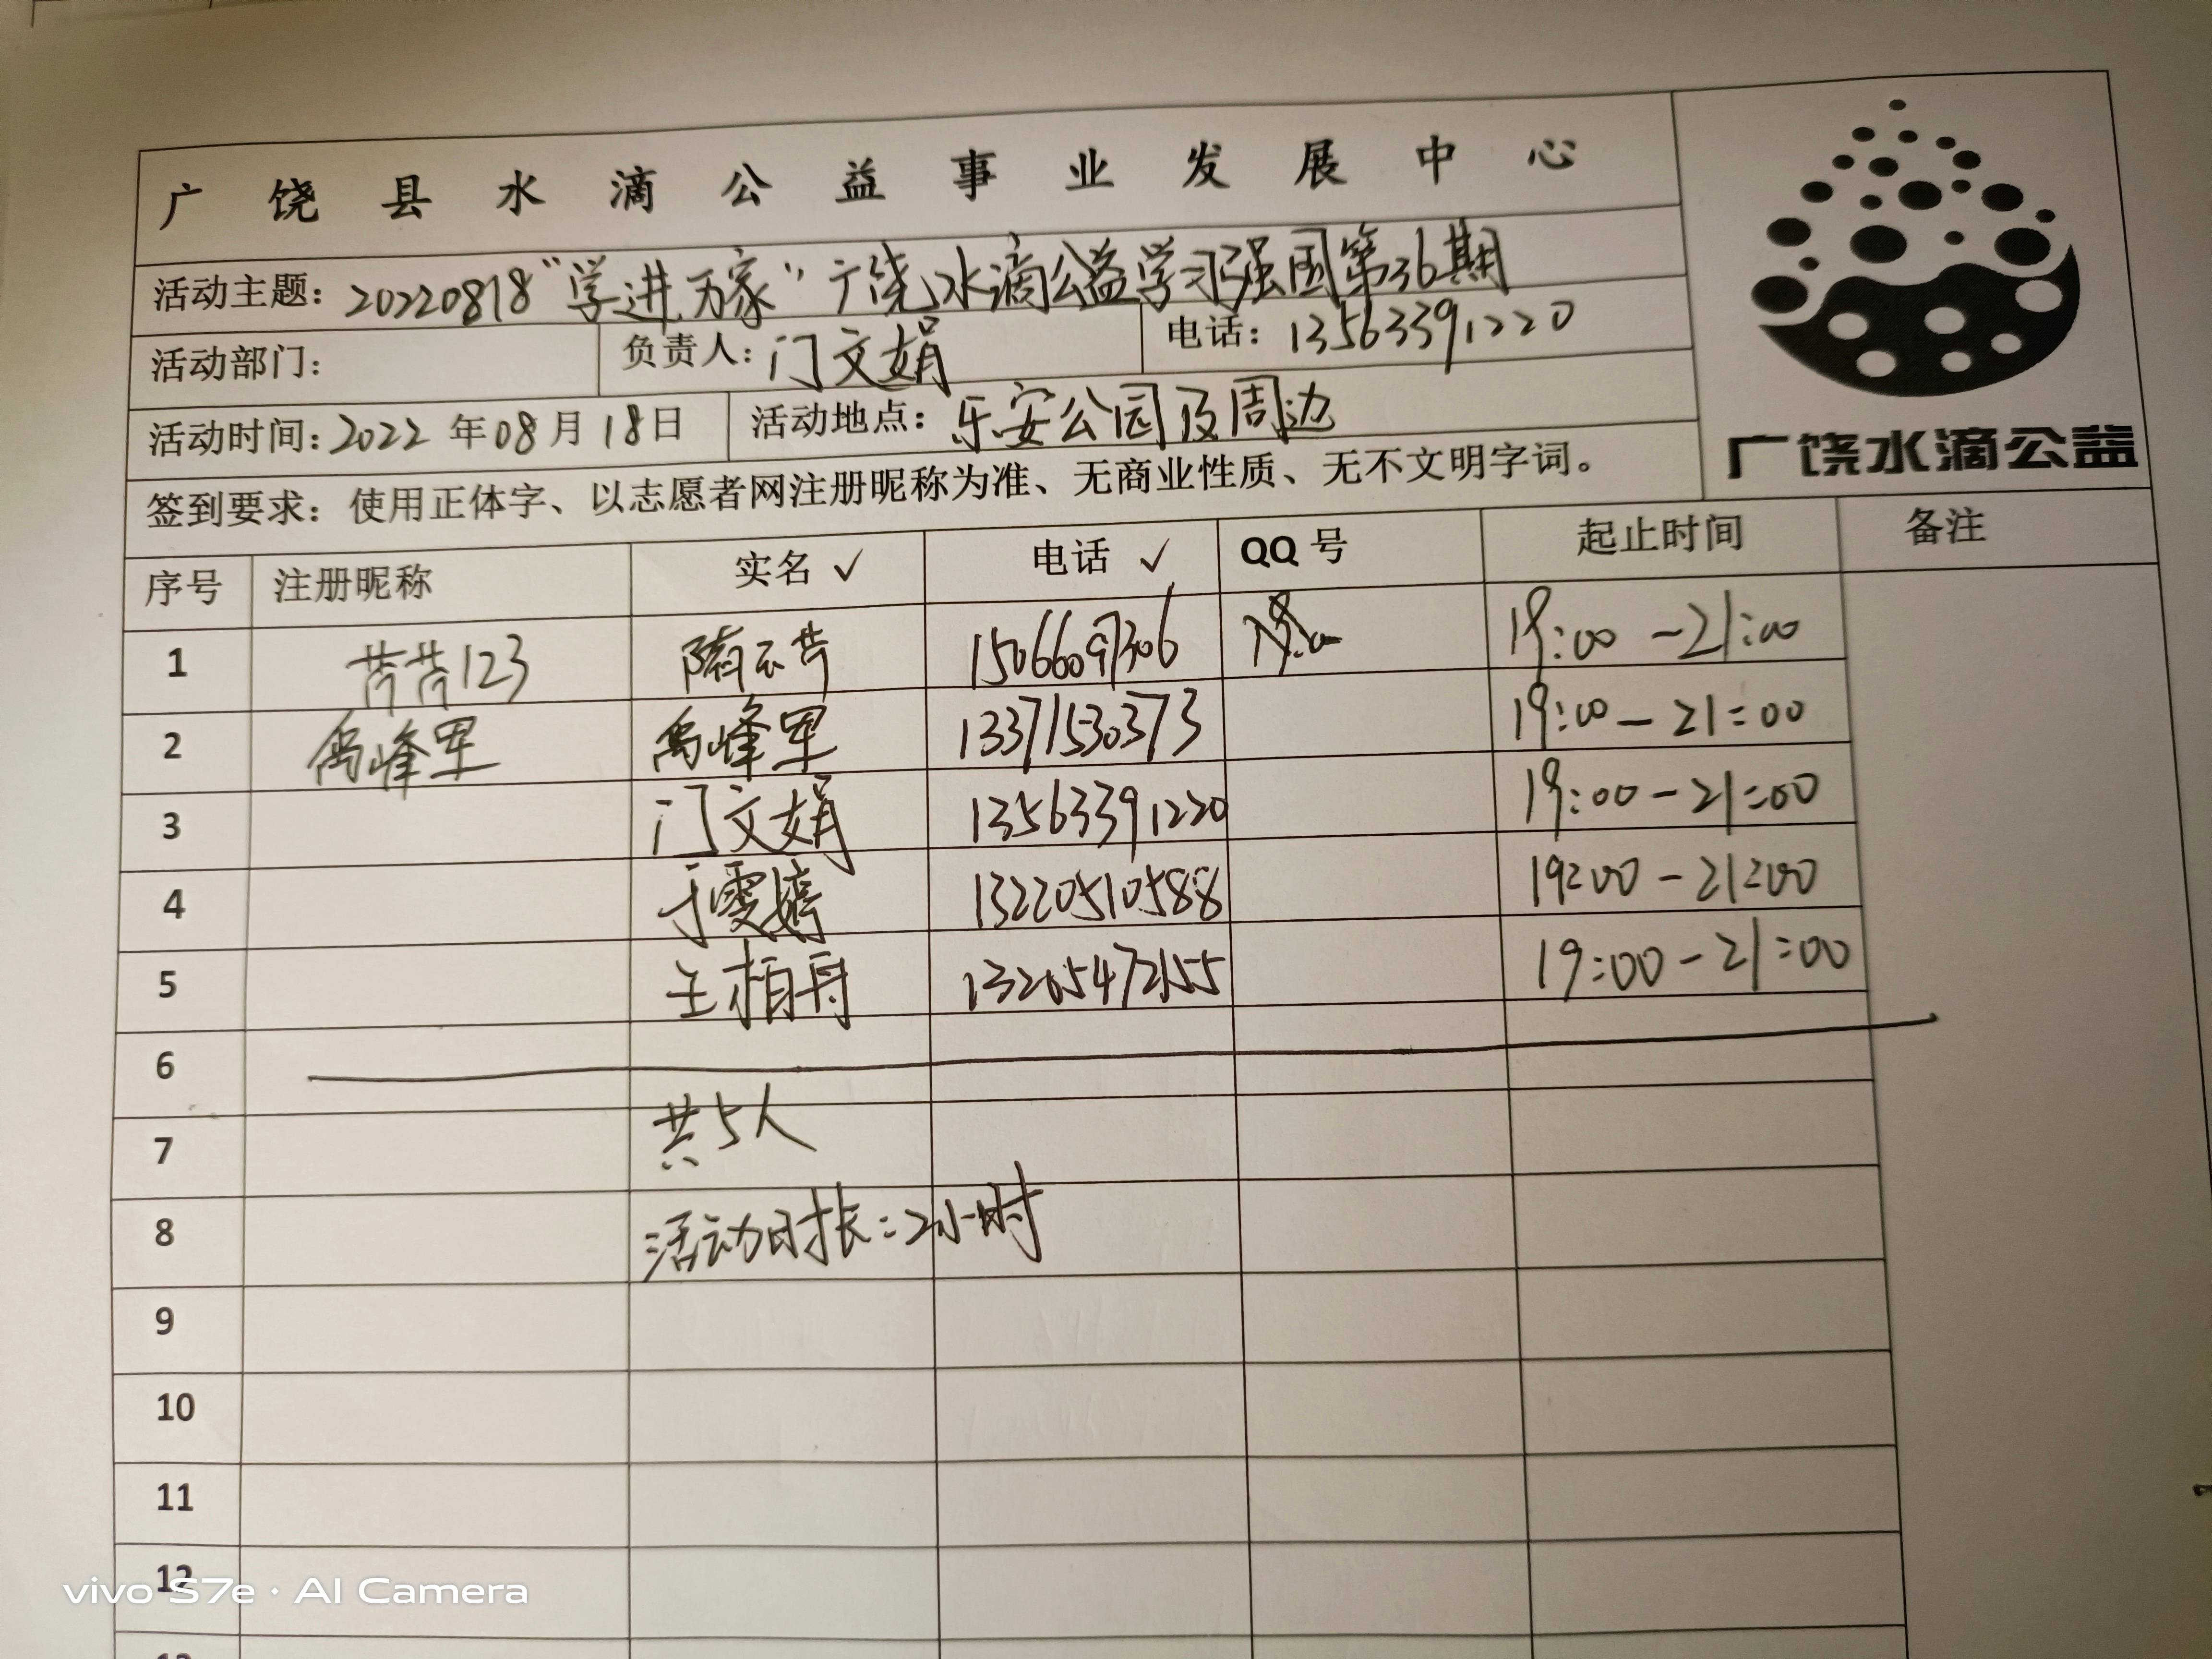 广饶县水滴公益事业发展中心
活动主题：20220818“学进万家”广饶水滴公益学习强国第36期
活动部门： 负责人：门文娟 电话：13563391220
活动时间：2022年08月18日 活动地点：乐安公园及周边
签到要求：使用正体字、以志愿者网注册昵称为准、无商业性质、无不文明字词。
广饶水滴公益
序号 注册昵称 实名✓ 电话✓ QQ号 起止时间 备注
1 芳芳123 隋云芳 15066097306 19:00-21:00
2 峰军 峰军 13371530373 19:00-21:00
3 门文娟 13563391220 19:00-21:00
4 于雯婷 13220510588 19:00-21:00
5 王柏舟 19:00-21:00
6
7 共5人
8 活动时长：2小时
9
10
11
12
vivo S7e · AI Camera